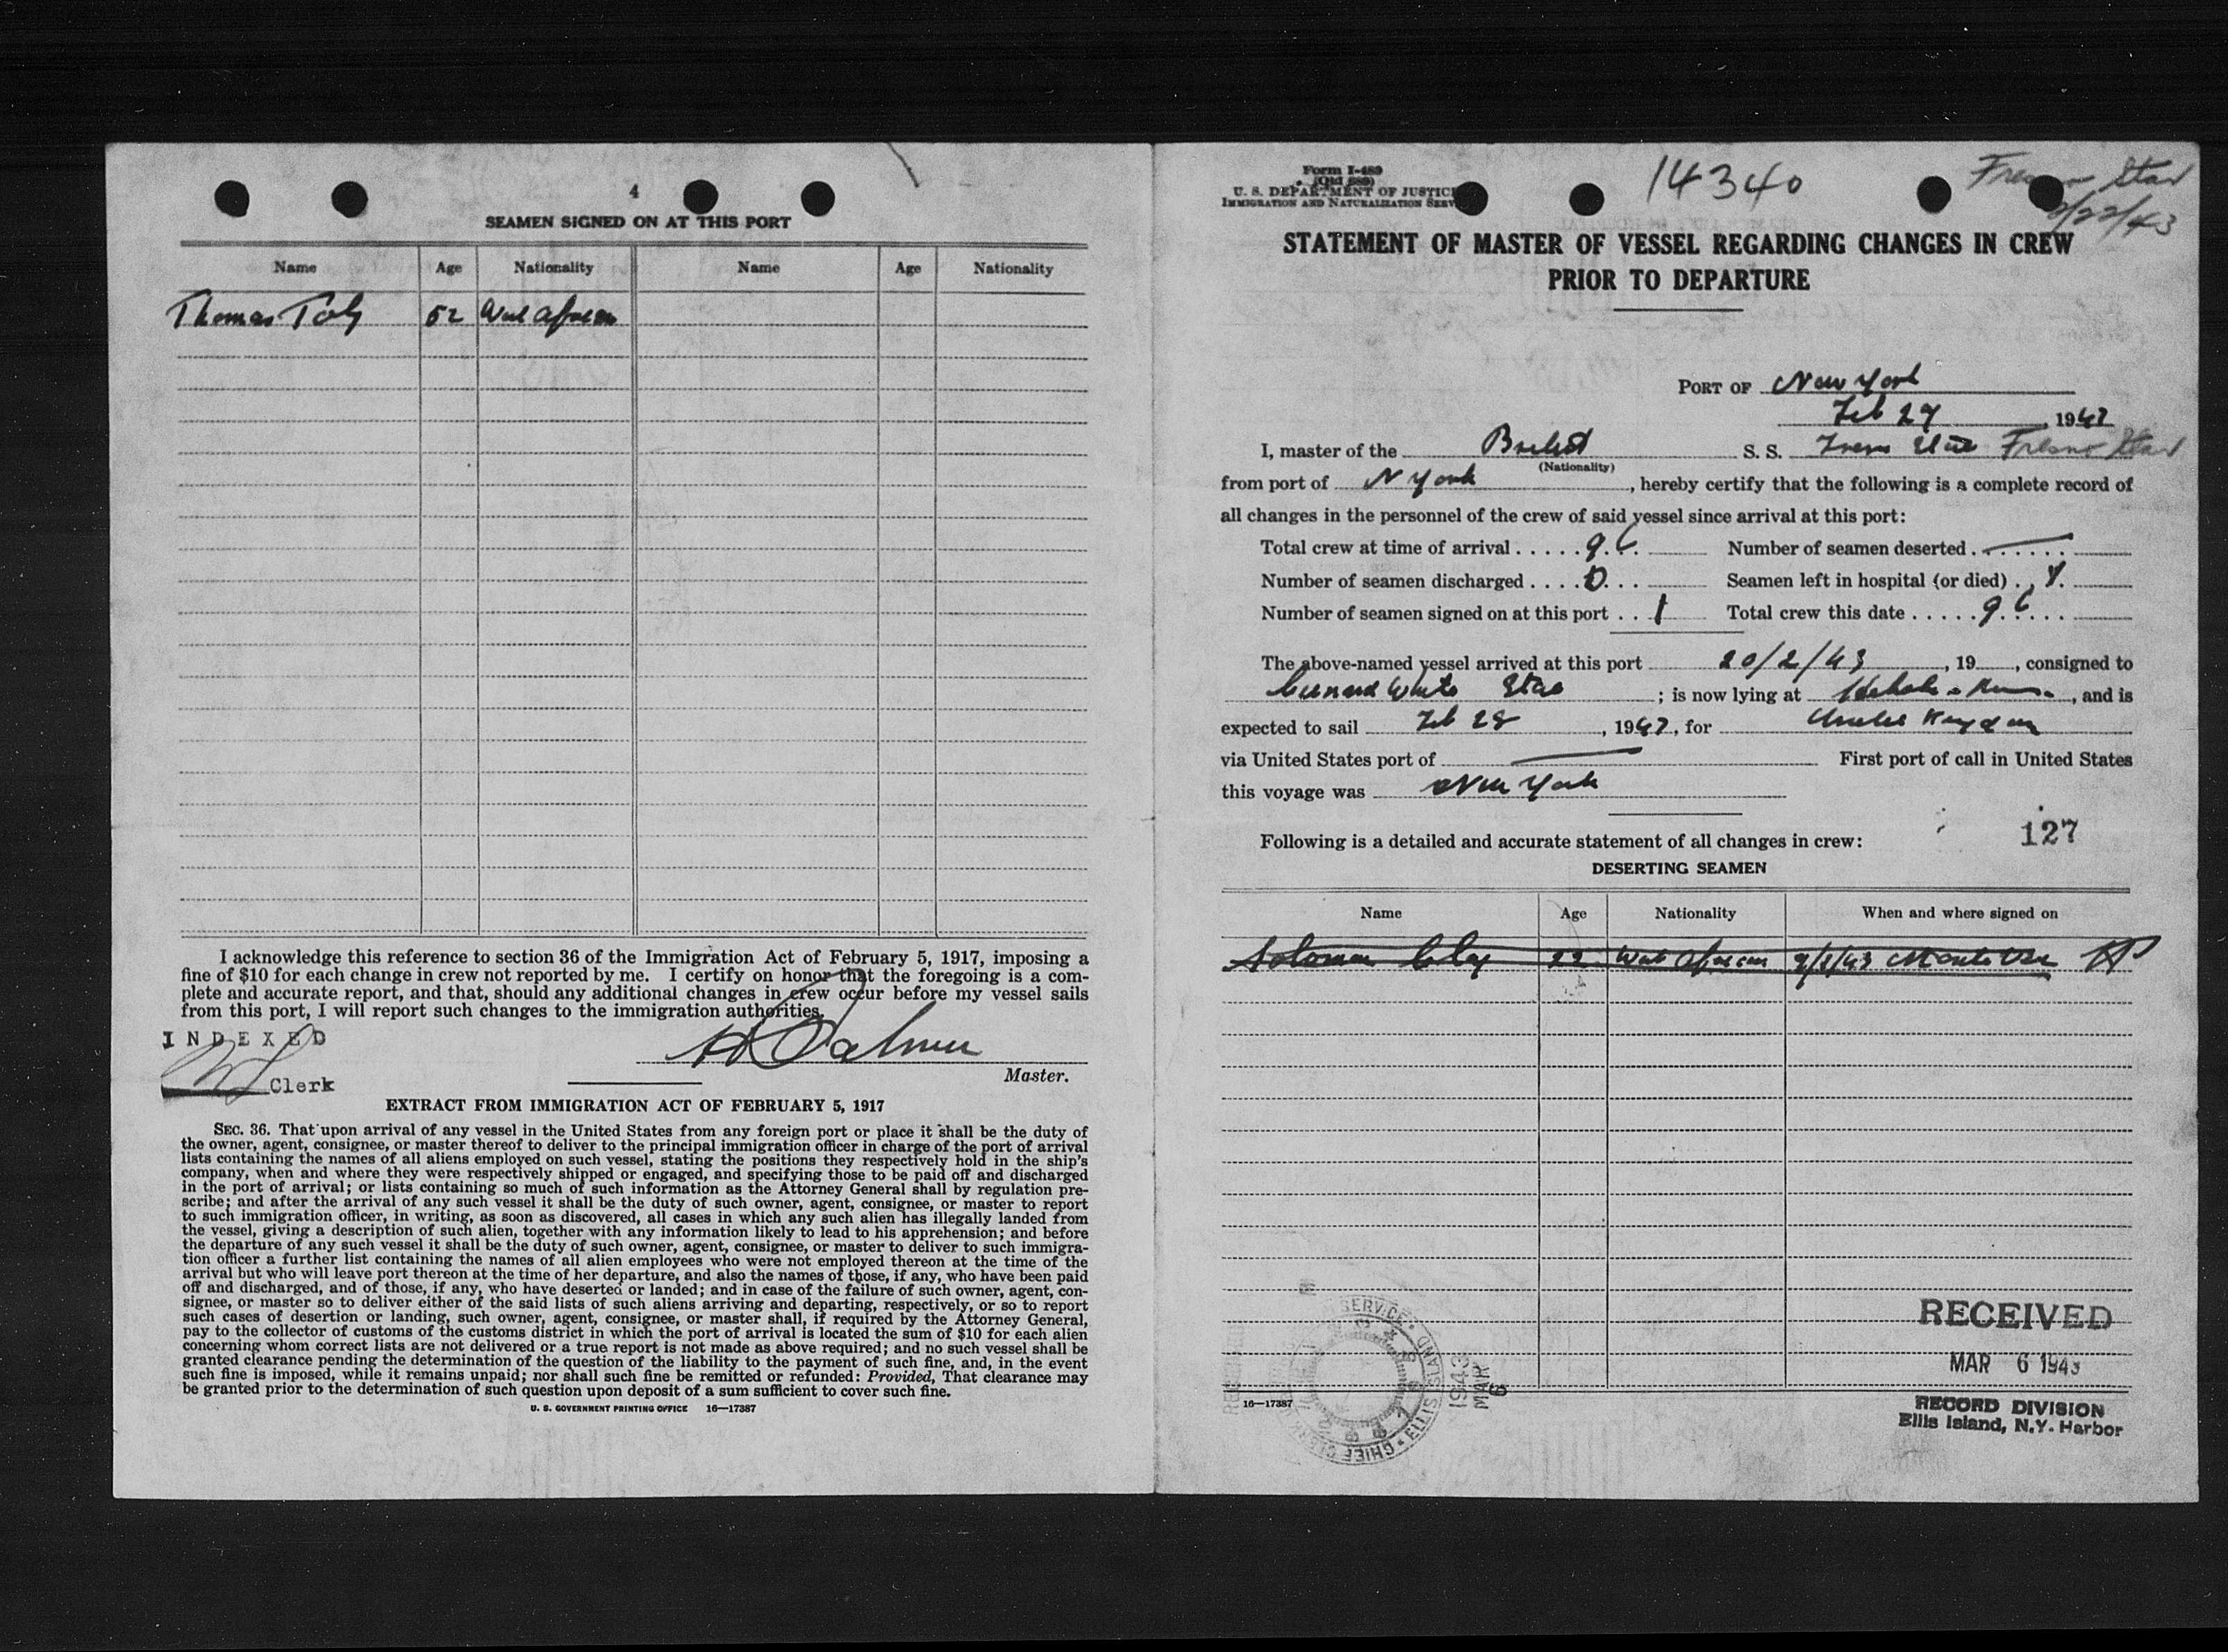 4
SEAMEN SIGNED ON AT THIS PORT
Name Age Nationality Name Age Nationality
Thomas 52
I acknowledge this reference to section 36 of the Immigration Act of February 5, 1917, imposing a
fine of $10 for each change in crew not reported by me. I certify on honor that the foregoing is a com-
plete and accurate report, and that, should any additional changes in crew occur before my vessel sails
from this port, I will report such changes to the immigration authorities.
INDEXED
Clerk
Palmer
Master.
EXTRACT FROM IMMIGRATION ACT OF FEBRUARY 5, 1917
SEC. 36. That upon arrival of any vessel in the United States from any foreign port or place it shall be the duty of
the owner, agent, consignee, or master thereof to deliver to the principal immigration officer in charge of the port of arrival
lists containing the names of all aliens employed on such vessel, stating the positions they respectively hold in the ship's
company, when and where they were respectively shipped or engaged, and specifying those to be paid off and discharged
in the port of arrival; or lists containing so much of such information as the Attorney General shall by regulation pre-
scribe; and after the arrival of any such vessel it shall be the duty of such owner, agent, consignee, or master to report
to such immigration officer, in writing, as soon as discovered, all cases in which any such alien has illegally landed from
the vessel, giving a description of such alien, together with any information likely to lead to his apprehension; and before
the departure of any such vessel it shall be the duty of such owner, agent, consignee, or master to deliver to such immigra-
tion officer a further list containing the names of all alien employees who were not employed thereon at the time of the
arrival but who will leave port thereon at the time of her departure, and also the names of those, if any, who have been paid
off and discharged, and of those, if any, who have deserted or landed; and in case of the failure of such owner, agent, con-
signee, or master so to deliver either of the said lists of such aliens arriving and departing, respectively, or so to report
such cases of desertion or landing, such owner, agent, consignee, or master shall, if required by the Attorney General,
pay to the collector of customs of the customs district in which the port of arrival is located the sum of $10 for each alien
concerning whom correct lists are not delivered or a true report is not made as above required; and no such vessel shall be
granted clearance pending the determination of the question of the liability to the payment of such fine, and, in the event
such fine is imposed, while it remains unpaid; nor shall such fine be remitted or refunded: Provided, That clearance may
be granted prior to the determination of such question upon deposit of a sum sufficient to cover such fine.
U. S. GOVERNMENT PRINTING OFFICE 16—17387
Form I-489
(Old 689)
U. S. DEPARTMENT OF JUSTICE
IMMIGRATION AND NATURALIZATION SERV
14340
Fresno Star
2/22/43
STATEMENT OF MASTER OF VESSEL REGARDING CHANGES IN CREW
PRIOR TO DEPARTURE
PORT OF New York
Feb 27, 1943
I, master of the British S. S. Fresno Star
(Nationality)
from port of N York, hereby certify that the following is a complete record of
all changes in the personnel of the crew of said vessel since arrival at this port:
Total crew at time of arrival ..... 96 Number of seamen deserted .......
Number of seamen discharged .... 0 Seamen left in hospital (or died) .
Number of seamen signed on at this port .. 1 Total crew this date ..... 96
The above-named vessel arrived at this port 20/2/43, 19 , consigned to
Cunard White Star; is now lying at , and is
expected to sail Feb 28, 1943, for United Kingdom
via United States port of First port of call in United States
this voyage was New York
Following is a detailed and accurate statement of all changes in crew: 127
DESERTING SEAMEN
Name Age Nationality When and where signed on
Solomon Clay 22 West African Montevideo
RECEIVED
MAR 6 1943
RECORD DIVISION
Ellis Island, N.Y. Harbor
SERVICE
ELLIS ISLAND
CHIEF
1943
MAR
6
16—17387